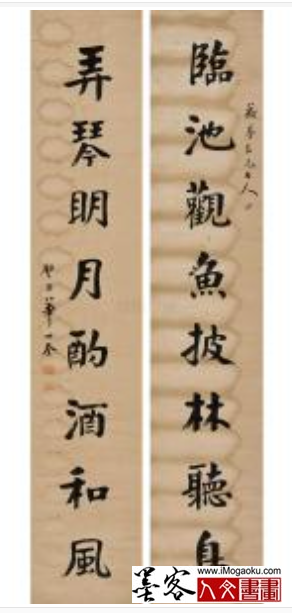 臨池觀魚披林聽鳥
弄琴明月酌酒和風
www.iMogaoku.com
墨客
人文書畫